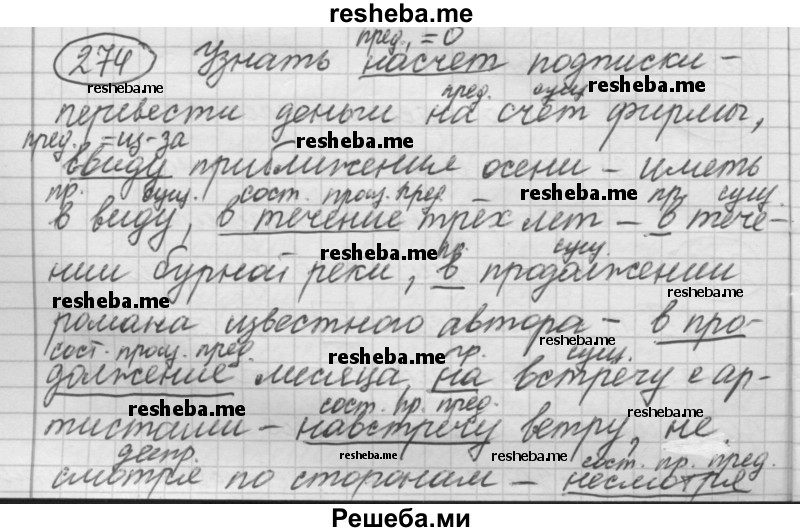 resheba.me
пред. = о
274 Узнать насчет подписки –
resheba.me пред. сущ. resheba.me
перевести деньги на счёт фирмы,
пред. = из-за resheba.me
ввиду приближения осени – иметь
пр. сущ. сост. произ. пред. resheba.me пр. сущ.
в виду, в течение трех лет – в тече-
resheba.me пр. сущ.
нии бурной реки, в продолжении
resheba.me resheba.me
романа известного автора – в про-
сост. произ. пред. resheba.me пр. сущ. resheba.me
должение месяца, на встречу с ар-
resheba.me сост. пр. пред. resheba.me
тистами – навстречу ветру, не
деепр. resheba.me resheba.me сост. пр. пред.
смотря по сторонам – несмотря
Решеба.ми